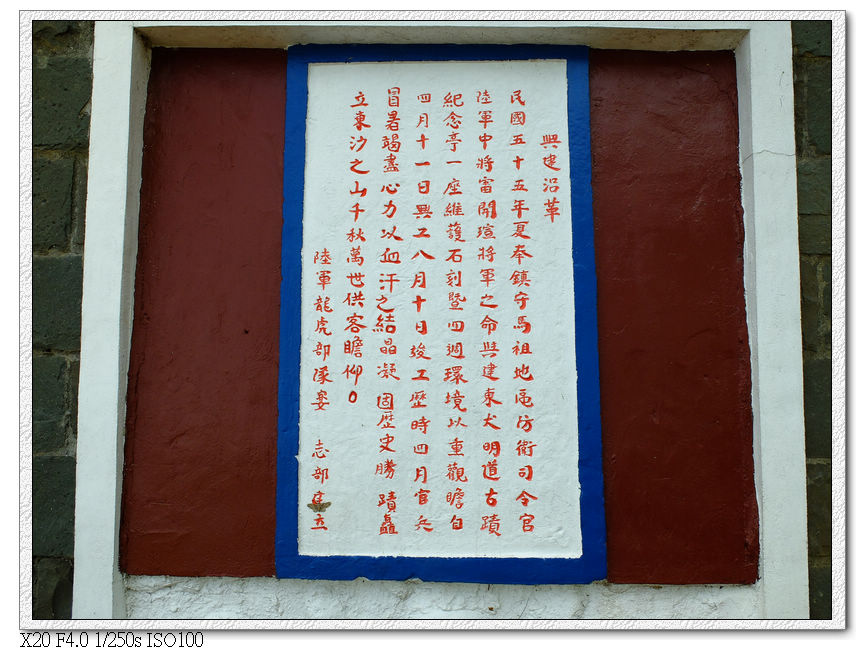 興建沿革
民國五十五年夏奉鎮守馬祖地區防衛司令官
陸軍中將雷開瑄將軍之命興建東犬明道古蹟
紀念亭一座維護石刻暨四週環境以重觀瞻自
四月十一日興工八月十日竣工歷時四月官兵
冒暑竭盡心力以血汗之結晶凝固歷史勝蹟矗
立東沙之山千秋萬世供客瞻仰。
陸軍龍虎部隊姿志部建立
X20 F4.0 1/250s ISO100